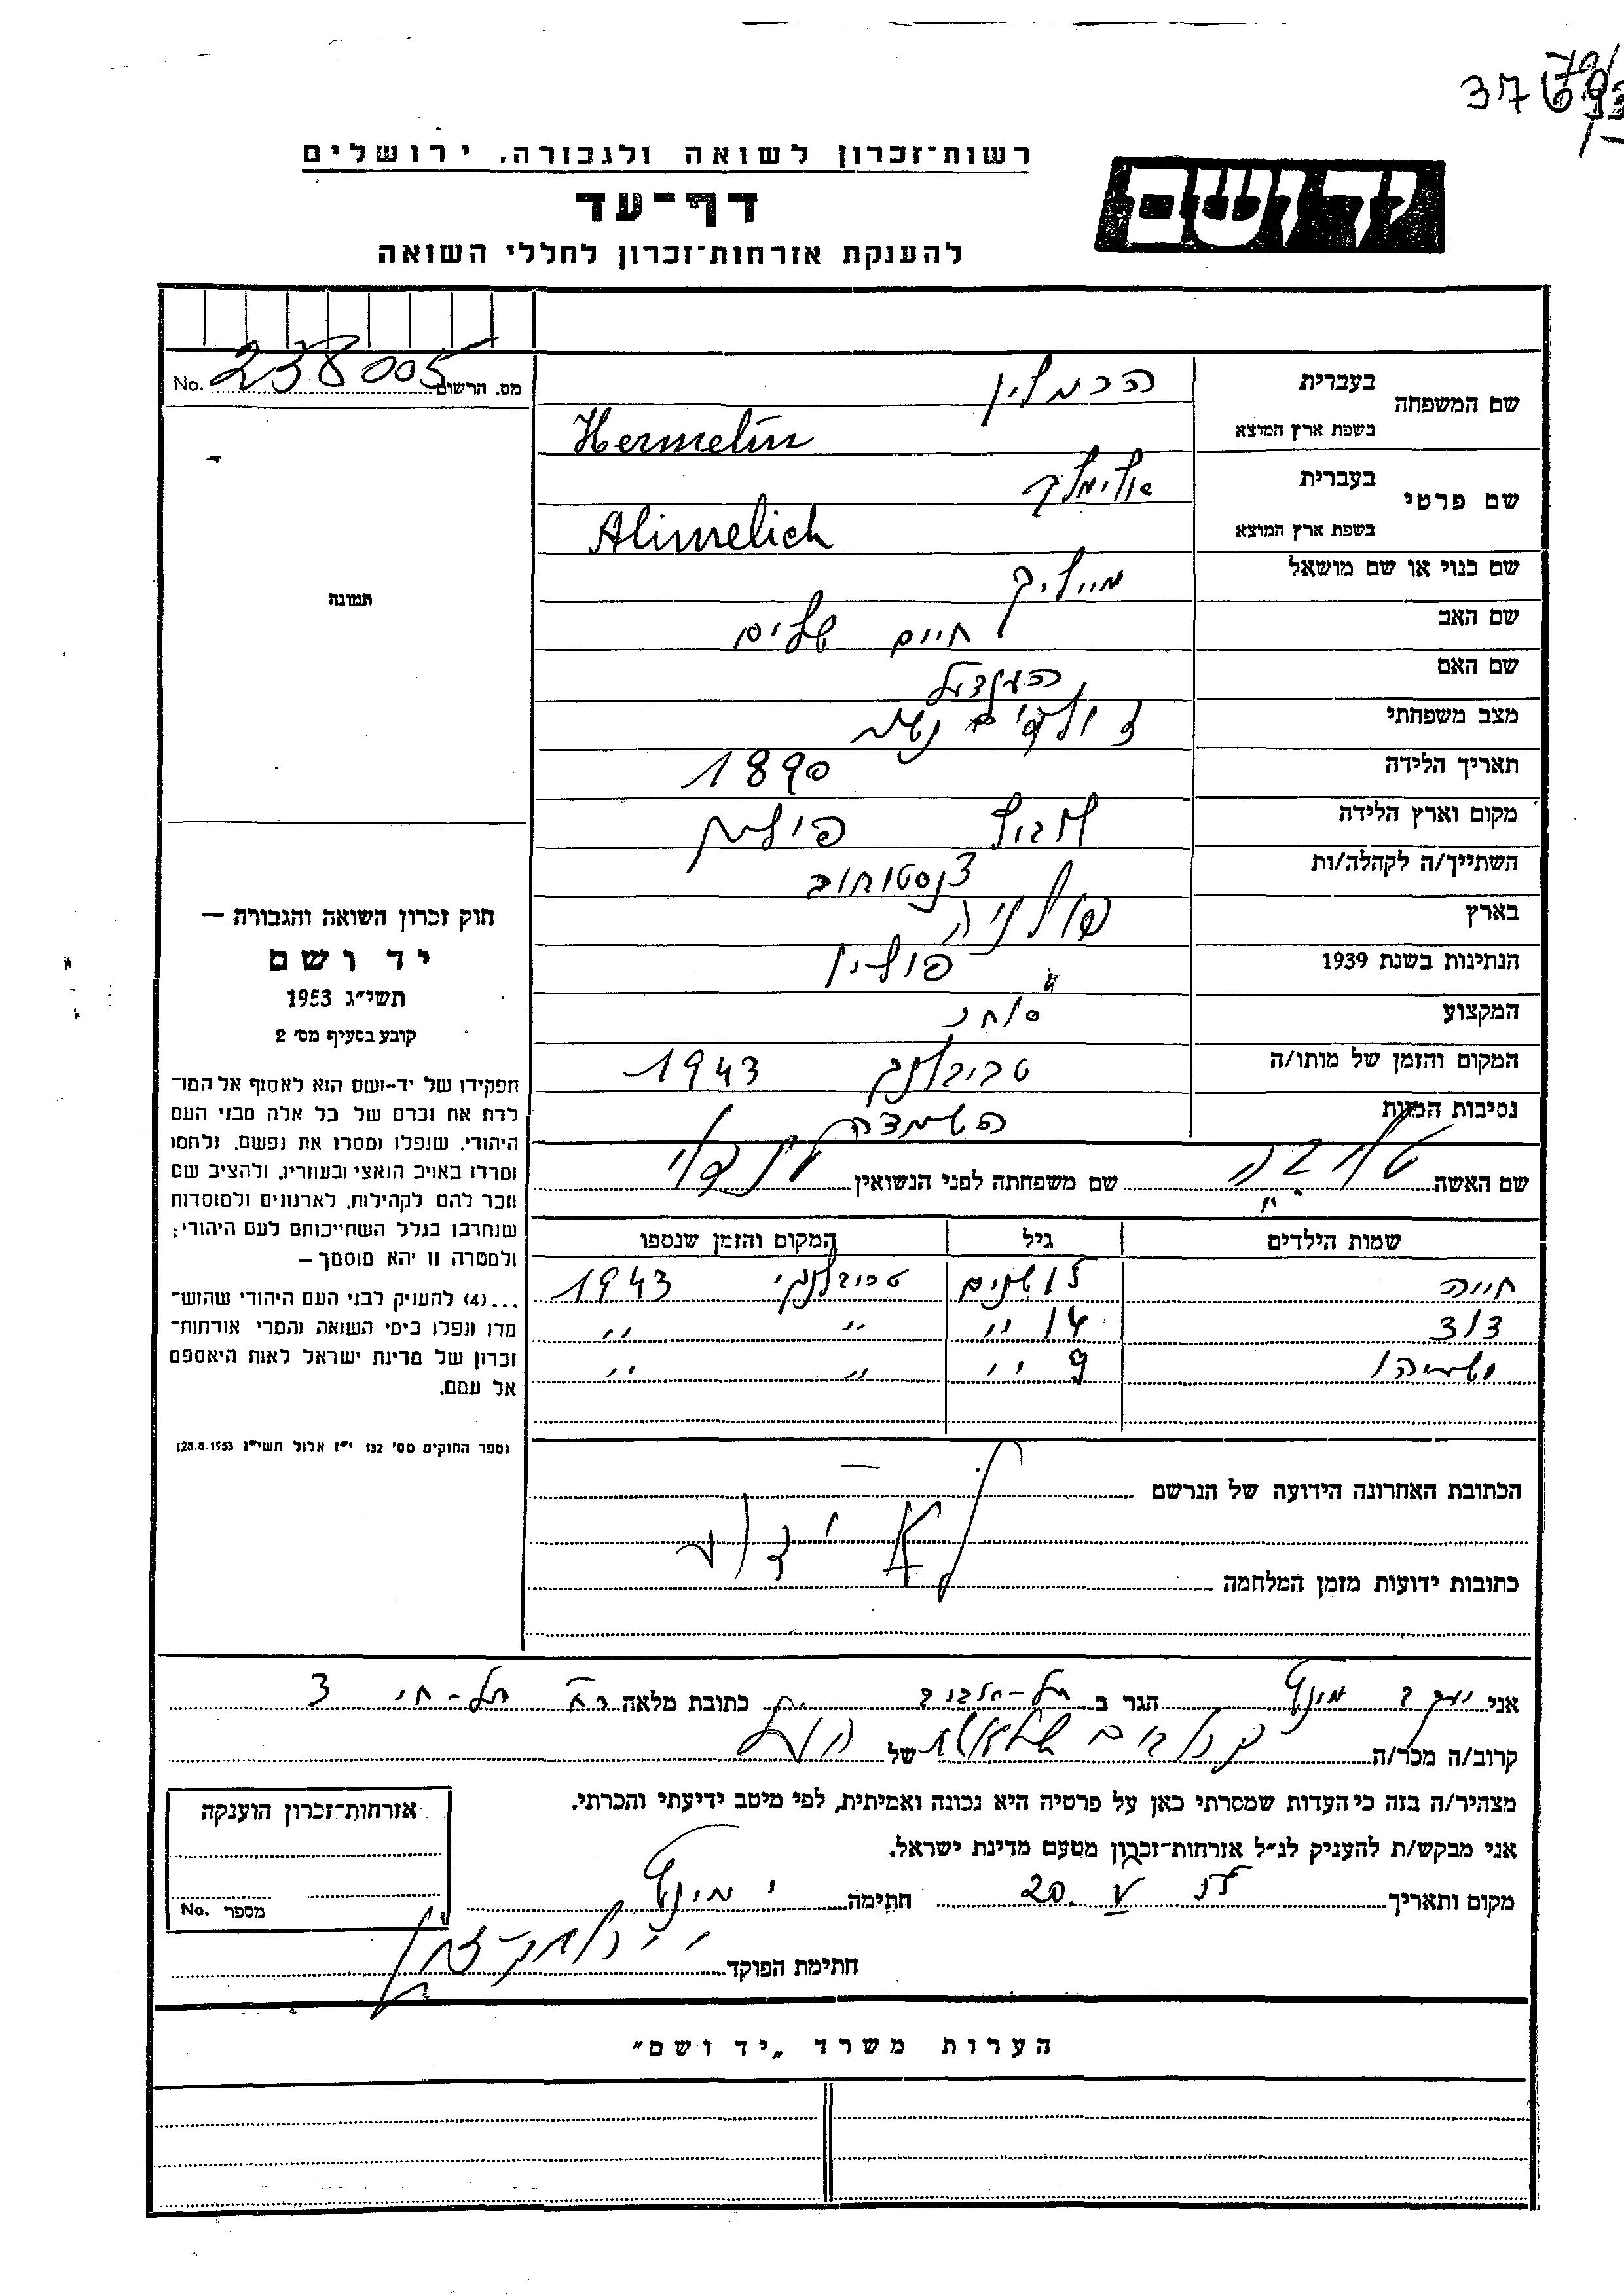 רשות־זכרון לשואה ולגבורה, ירושלים
יד ושם
דף־עד
להענקת אזרחות־זכרון לחללי השואה
מס. הרשום 238005 No.
שם המשפחה
בעברית הרמלין
בשפת ארץ המוצא Hermelin
שם פרטי
בעברית אלימלך
בשפת ארץ המוצא Alimelich
שם כנוי או שם מושאל מיילך
שם האב חיים שלום
שם האם
מצב משפחתי נשוי
תאריך הלידה 1890
מקום וארץ הלידה פולין
השתייך/ה לקהלה/ות צ'נסטוחוב
בארץ פולניה
הנתינות בשנת 1939 פולין
המקצוע סוחר
המקום והזמן של מותו/ה טרבלינקה 1943
נסיבות המות השמדה
שם האשה שם משפחתה לפני הנשואין
שמות הילדים גיל המקום והזמן שנספו
חייה שנים טרבלינקי 1943
דוד 14 " " "
ישעיהו 9 " " "
הכתובת האחרונה הידועה של הנרשם
לא ידוע
כתובות ידועות מזמן המלחמה
תמונה
חוק זכרון השואה והגבורה —
יד ושם
תשי״ג 1953
קובע בסעיף מס׳ 2
תפקידו של יד-ושם הוא לאסוף אל המו־
לדת את זכרם של כל אלה מבני העם
היהודי, שנפלו ומסרו את נפשם, נלחמו
ומרדו באויב הנאצי ובעוזריו, ולהציב שם
וזכר להם לקהילות, לארגונים ולמוסדות
שנחרבו בגלל השתייכותם לעם היהודי;
ולמטרה זו יהא מוסמך —
...(4) להעניק לבני העם היהודי שהוש־
מדו ונפלו בימי השואה והמרי אזרחות־
זכרון של מדינת ישראל לאות היאספם
אל עמם.
(ספר החוקים מס׳ 132 י״ז אלול תשי״ג 28.8.1953)
אני יעקב מינץ הגר ב תל-אביב כתובת מלאה רח' תל-חי 3
קרוב/ה מכר/ה של
מצהיר/ה בזה כי העדות שמסרתי כאן על פרטיה היא נכונה ואמיתית, לפי מיטב ידיעתי והכרתי.
אני מבקש/ת להעניק לנ״ל אזרחות־זכרון מטעם מדינת ישראל.
מקום ותאריך 20. V חתימה י מינץ
חתימת הפוקד
אזרחות־זכרון הוענקה
מספר No.
הערות משרד „יד ושם״